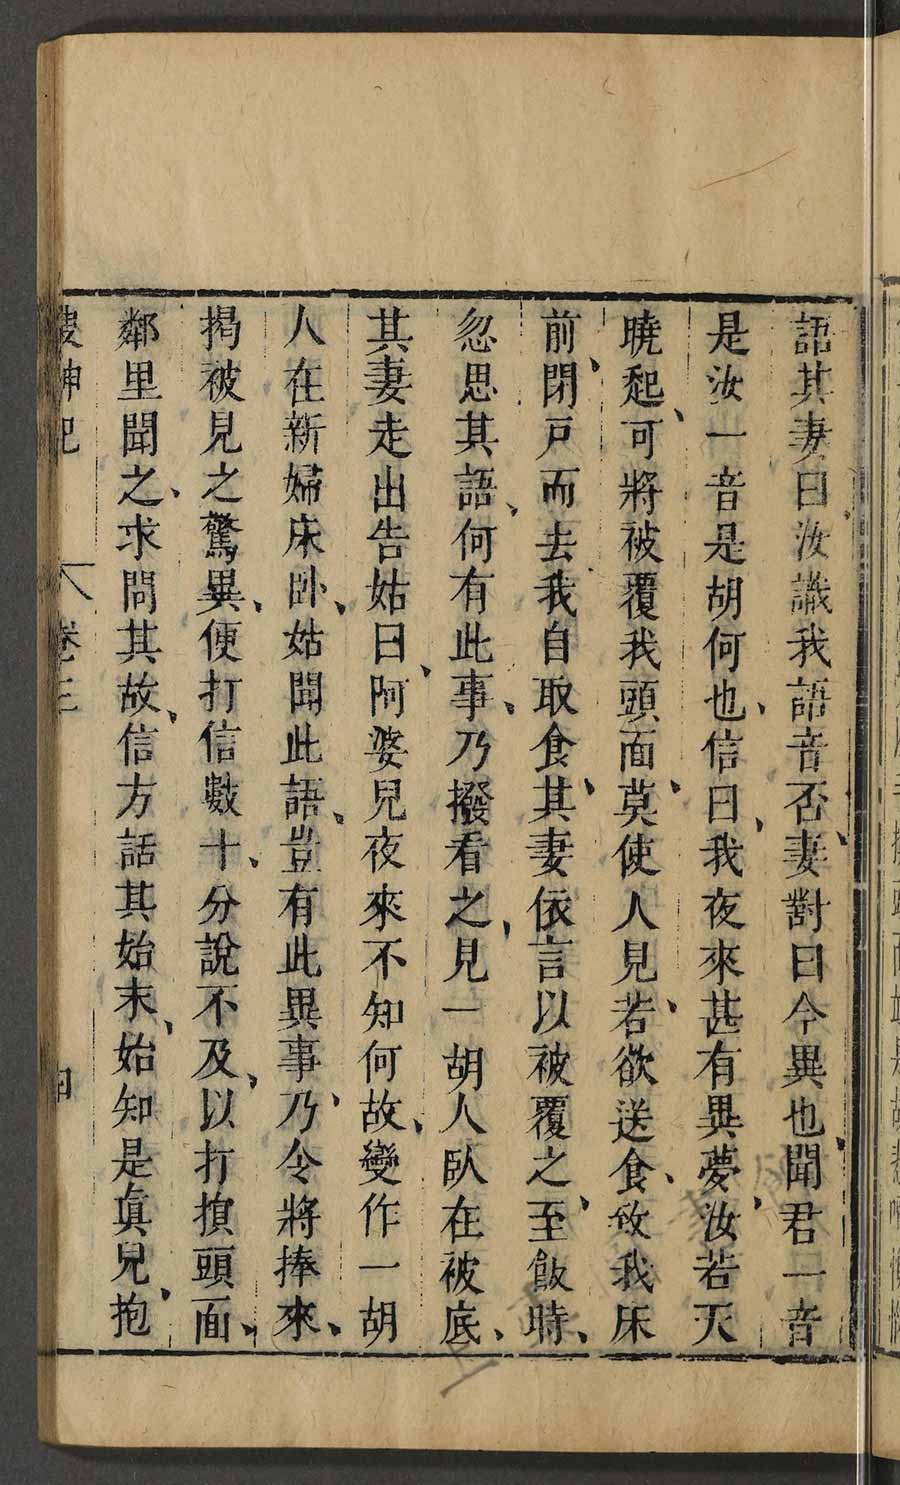 語其妻曰汝識我語音否妻對曰今異也聞君一音
是汝一音是胡何也信曰我夜來甚有異夢汝若天
曉起可將被覆我頭面莫使人見若欲送食致我床
前閉戸而去我自取食其妻依言以被覆之至飯時
忽思其語何有此事乃撥看之見一胡人臥在被底
其妻走出告姑曰阿婆兒夜來不知何故變作一胡
人在新婦床卧姑聞此語豈有此異事乃令將捧來
揭被見之驚異便打信數十分說不及以打損頭面
鄰里聞之求問其故信方話其始末始知是真兒抱
搜神記 卷三 四